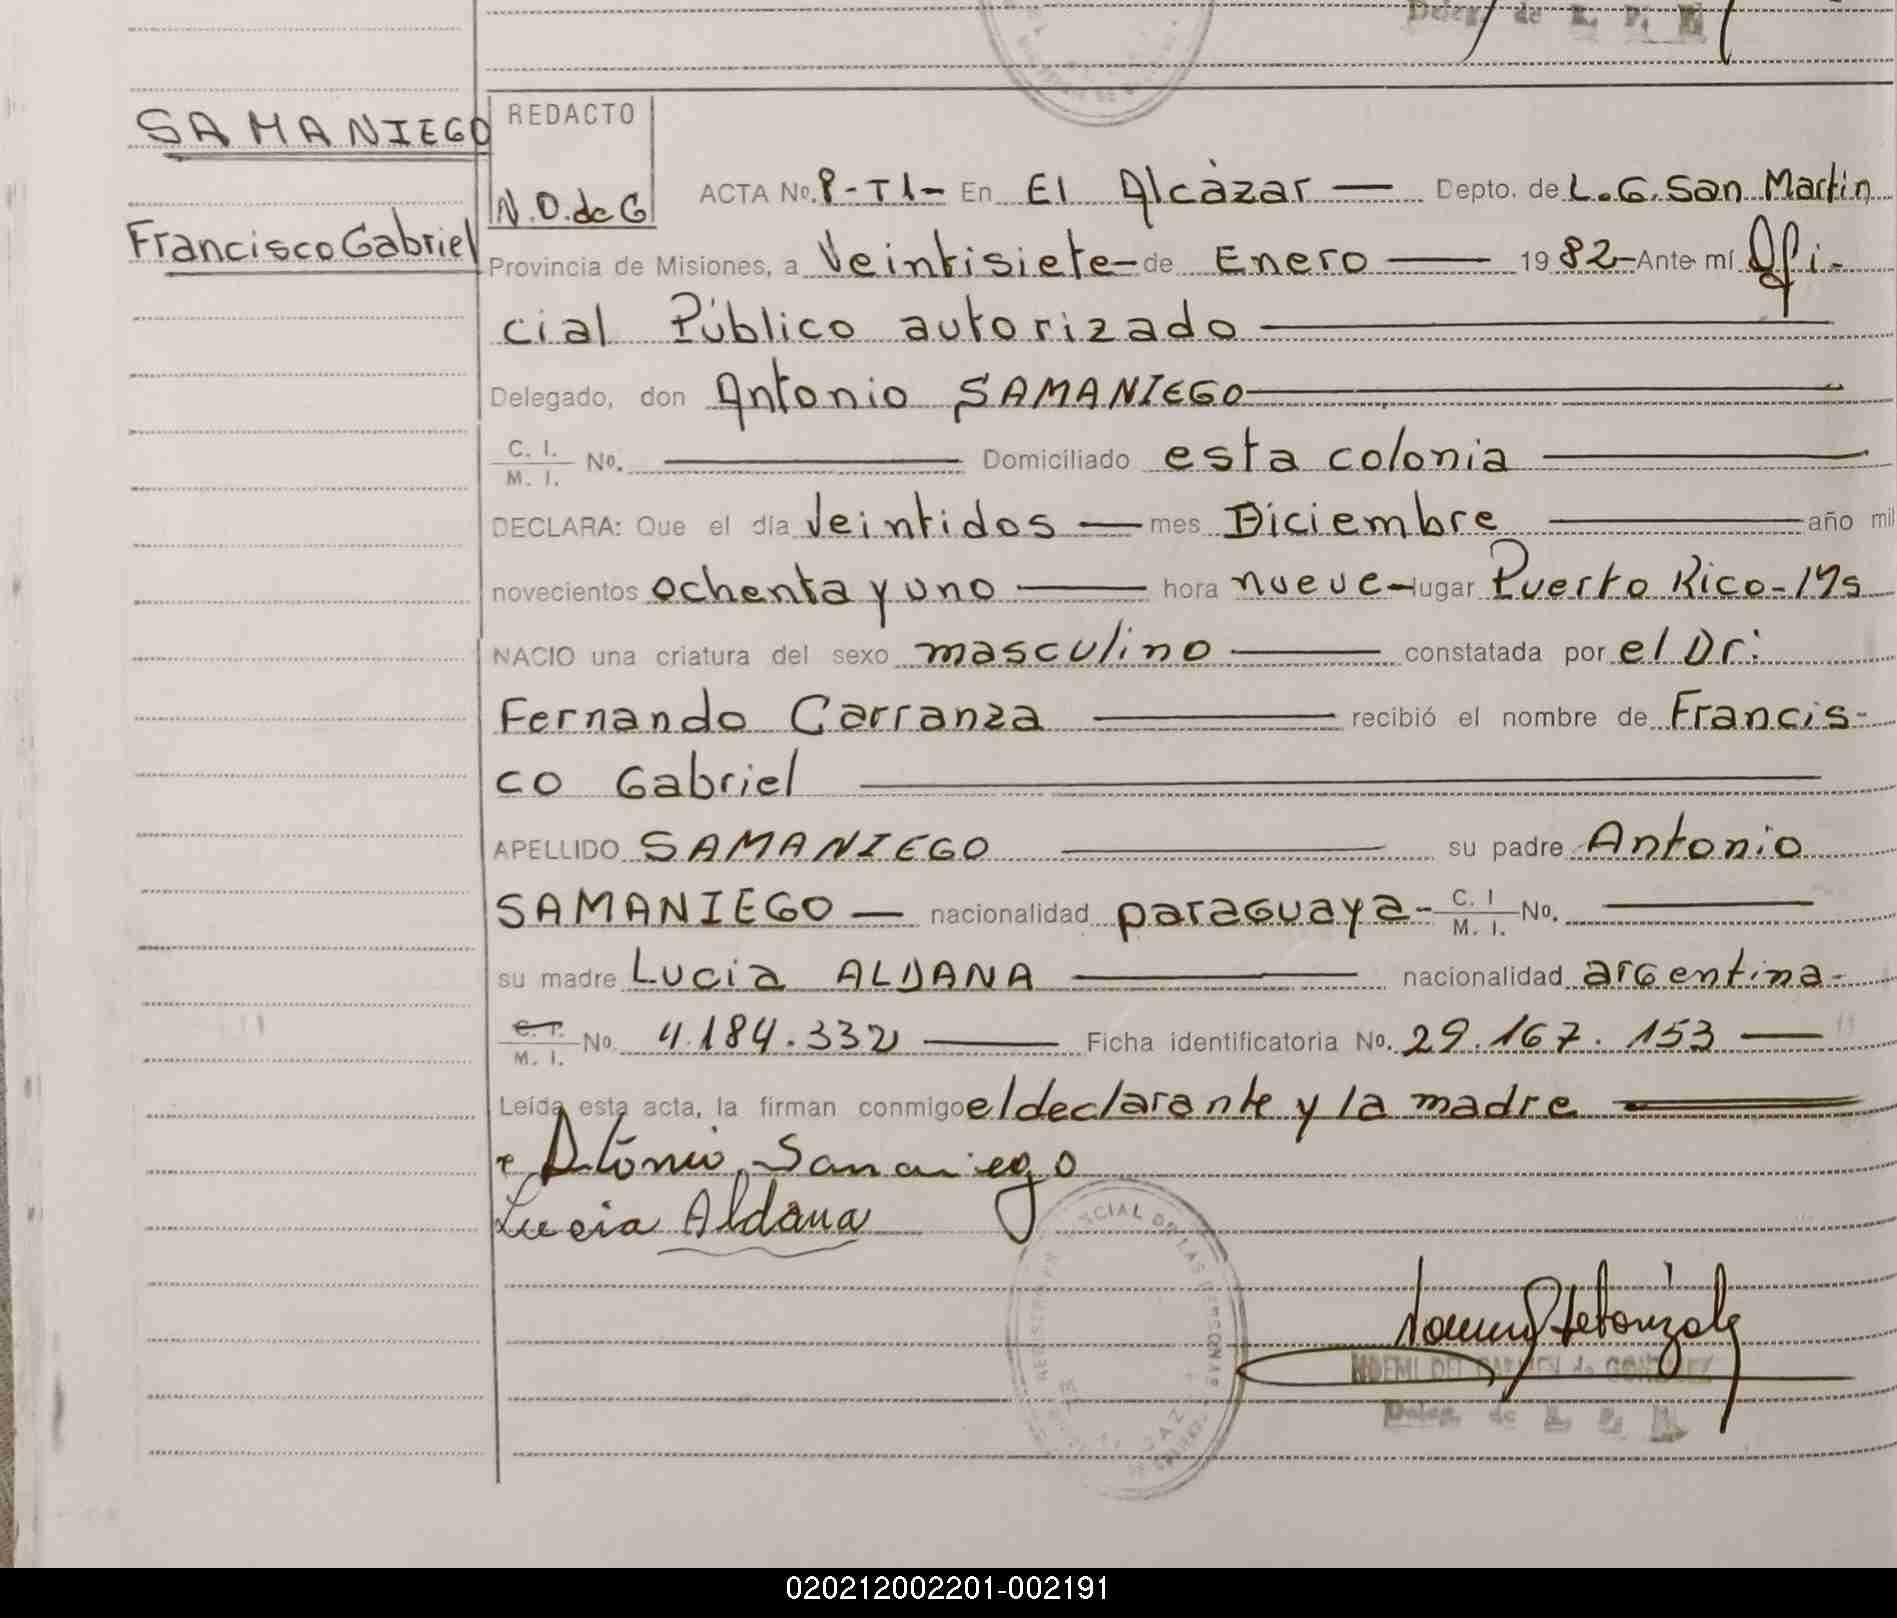 Deleg. de R. P. N.
SAMANIEGO
Francisco Gabriel
REDACTO
N.D.de G
ACTA No. 8-T1- En El Alcázar — Depto. de L.G. San Martin
Provincia de Misiones, a Veintisiete — de Enero — 1982 - Ante mí Ofi-
cial Público autorizado
Delegado, don Antonio SAMANIEGO
C. I. M. I. No. — Domiciliado esta colonia —
DECLARA: Que el día Veintidos — mes Diciembre — año mil
novecientos ochenta y uno — hora nueve - lugar Puerto Rico - Ms
NACIO una criatura del sexo masculino — constatada por el Dr:
Fernando Carranza — recibió el nombre de Francis-
co Gabriel —
APELLIDO SAMANIEGO — su padre Antonio
SAMANIEGO — nacionalidad paraguaya - C. I M. I. No. —
su madre Lucia ALDANA — nacionalidad argentina -
C. I. M. I. No. 4.184.332 — Ficha identificatoria No. 29.167.153 —
Leída esta acta, la firman conmigo el declarante y la madre
Antonio Samaniego
Lucia Aldana
NOEMI DEL CARMEN de GONZALEZ
Deleg. de
020212002201-002191